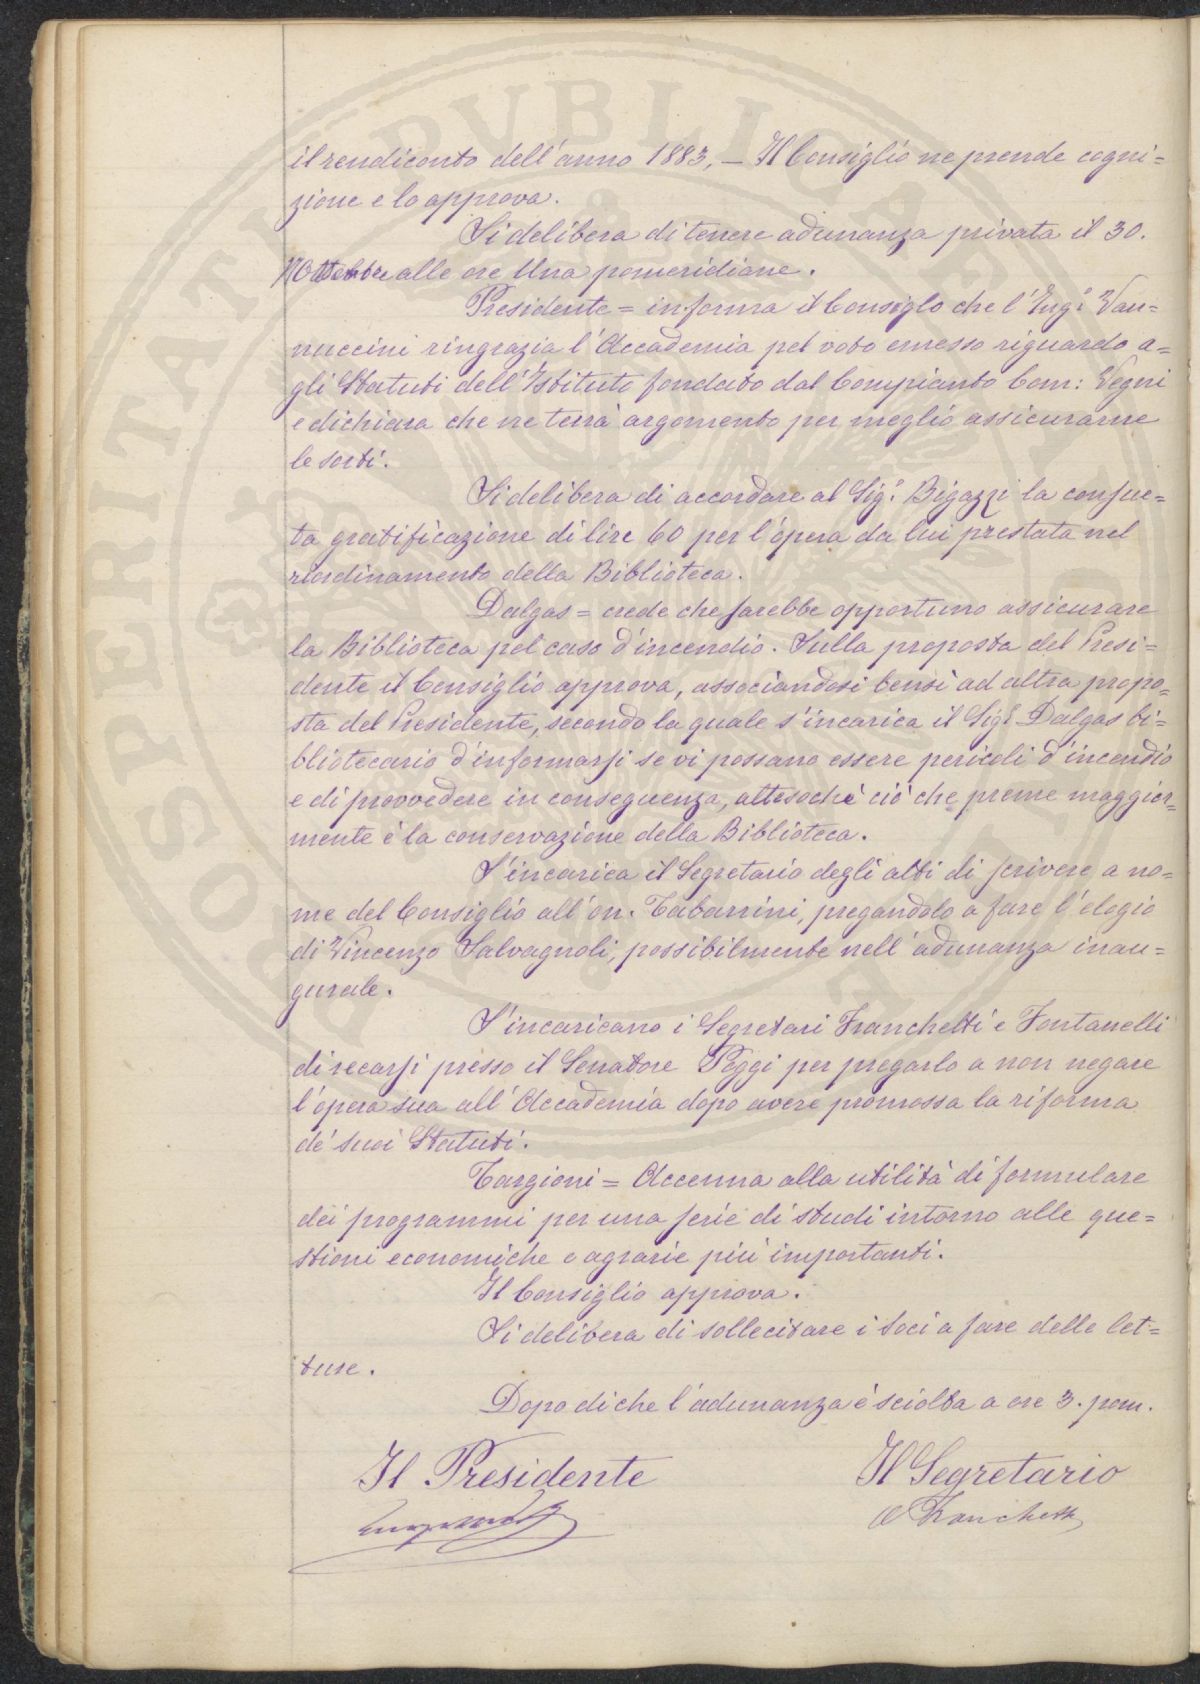 il rendiconto dell'anno 1883, — Il Consiglio ne prende cogni=
zione e lo approva.
Si delibera di tenere adunanza privata il 30.
alle ore Una pomeridiane.
Presidente = informa il Consiglo che l'Ing.e Van=
nuccini ringrazia l'Accademia pel voto emesso riguardo a=
gli Statuti dell'Istituto fondato dal Compianto Com: Vegni
e dichiara che ne terrà argomento per meglio assicurarne
le sorti.
Si delibera di accordare al Sig.r Bigazzi la consue=
ta gratificazione di lire 60 per l'opera da lui prestata nel
riordinamento della Biblioteca.
Dalgas = crede che sarebbe opportuno assicurare
la Biblioteca pel caso d'incendio. Sulla proposta del Presi=
dente il Consiglio approva, associandosi bensì ad altra propo=
sta del Presidente, secondo la quale s'incarica il Sig.r Dalgas bi=
bliotecario d'informarsi se vi possano essere pericoli d'incendio
e di provvedere in conseguenza, attesochè ciò che preme maggior=
mente è la conservazione della Biblioteca.
S'incarica il Segretario degli atti di scrivere a no=
me del Consiglio all'on. Tabarrini, pregandolo a fare l'elogio
di Vincenzo Salvagnoli, possibilmente nell'adunanza inau=
gurale.
S'incaricano i Segretari Franchetti e Fontanelli
di recarsi presso il Senatore Poggi per pregarlo a non negare
l'opera sua all'Accademia dopo avere promossa la riforma
de' suoi Statuti.
Targioni = Accenna alla utilità di formulare
dei programmi per una serie di studi intorno alle que=
stioni economiche e agrarie più importanti.
Il Consiglio approva.
Si delibera di sollecitare i Soci a fare delle let=
ture.
Dopo di che l'adunanza è sciolta a ore 3. pom.
Il Presidente
Il Segretario
A Franchetti
PROSPERITATI PVBLICAE